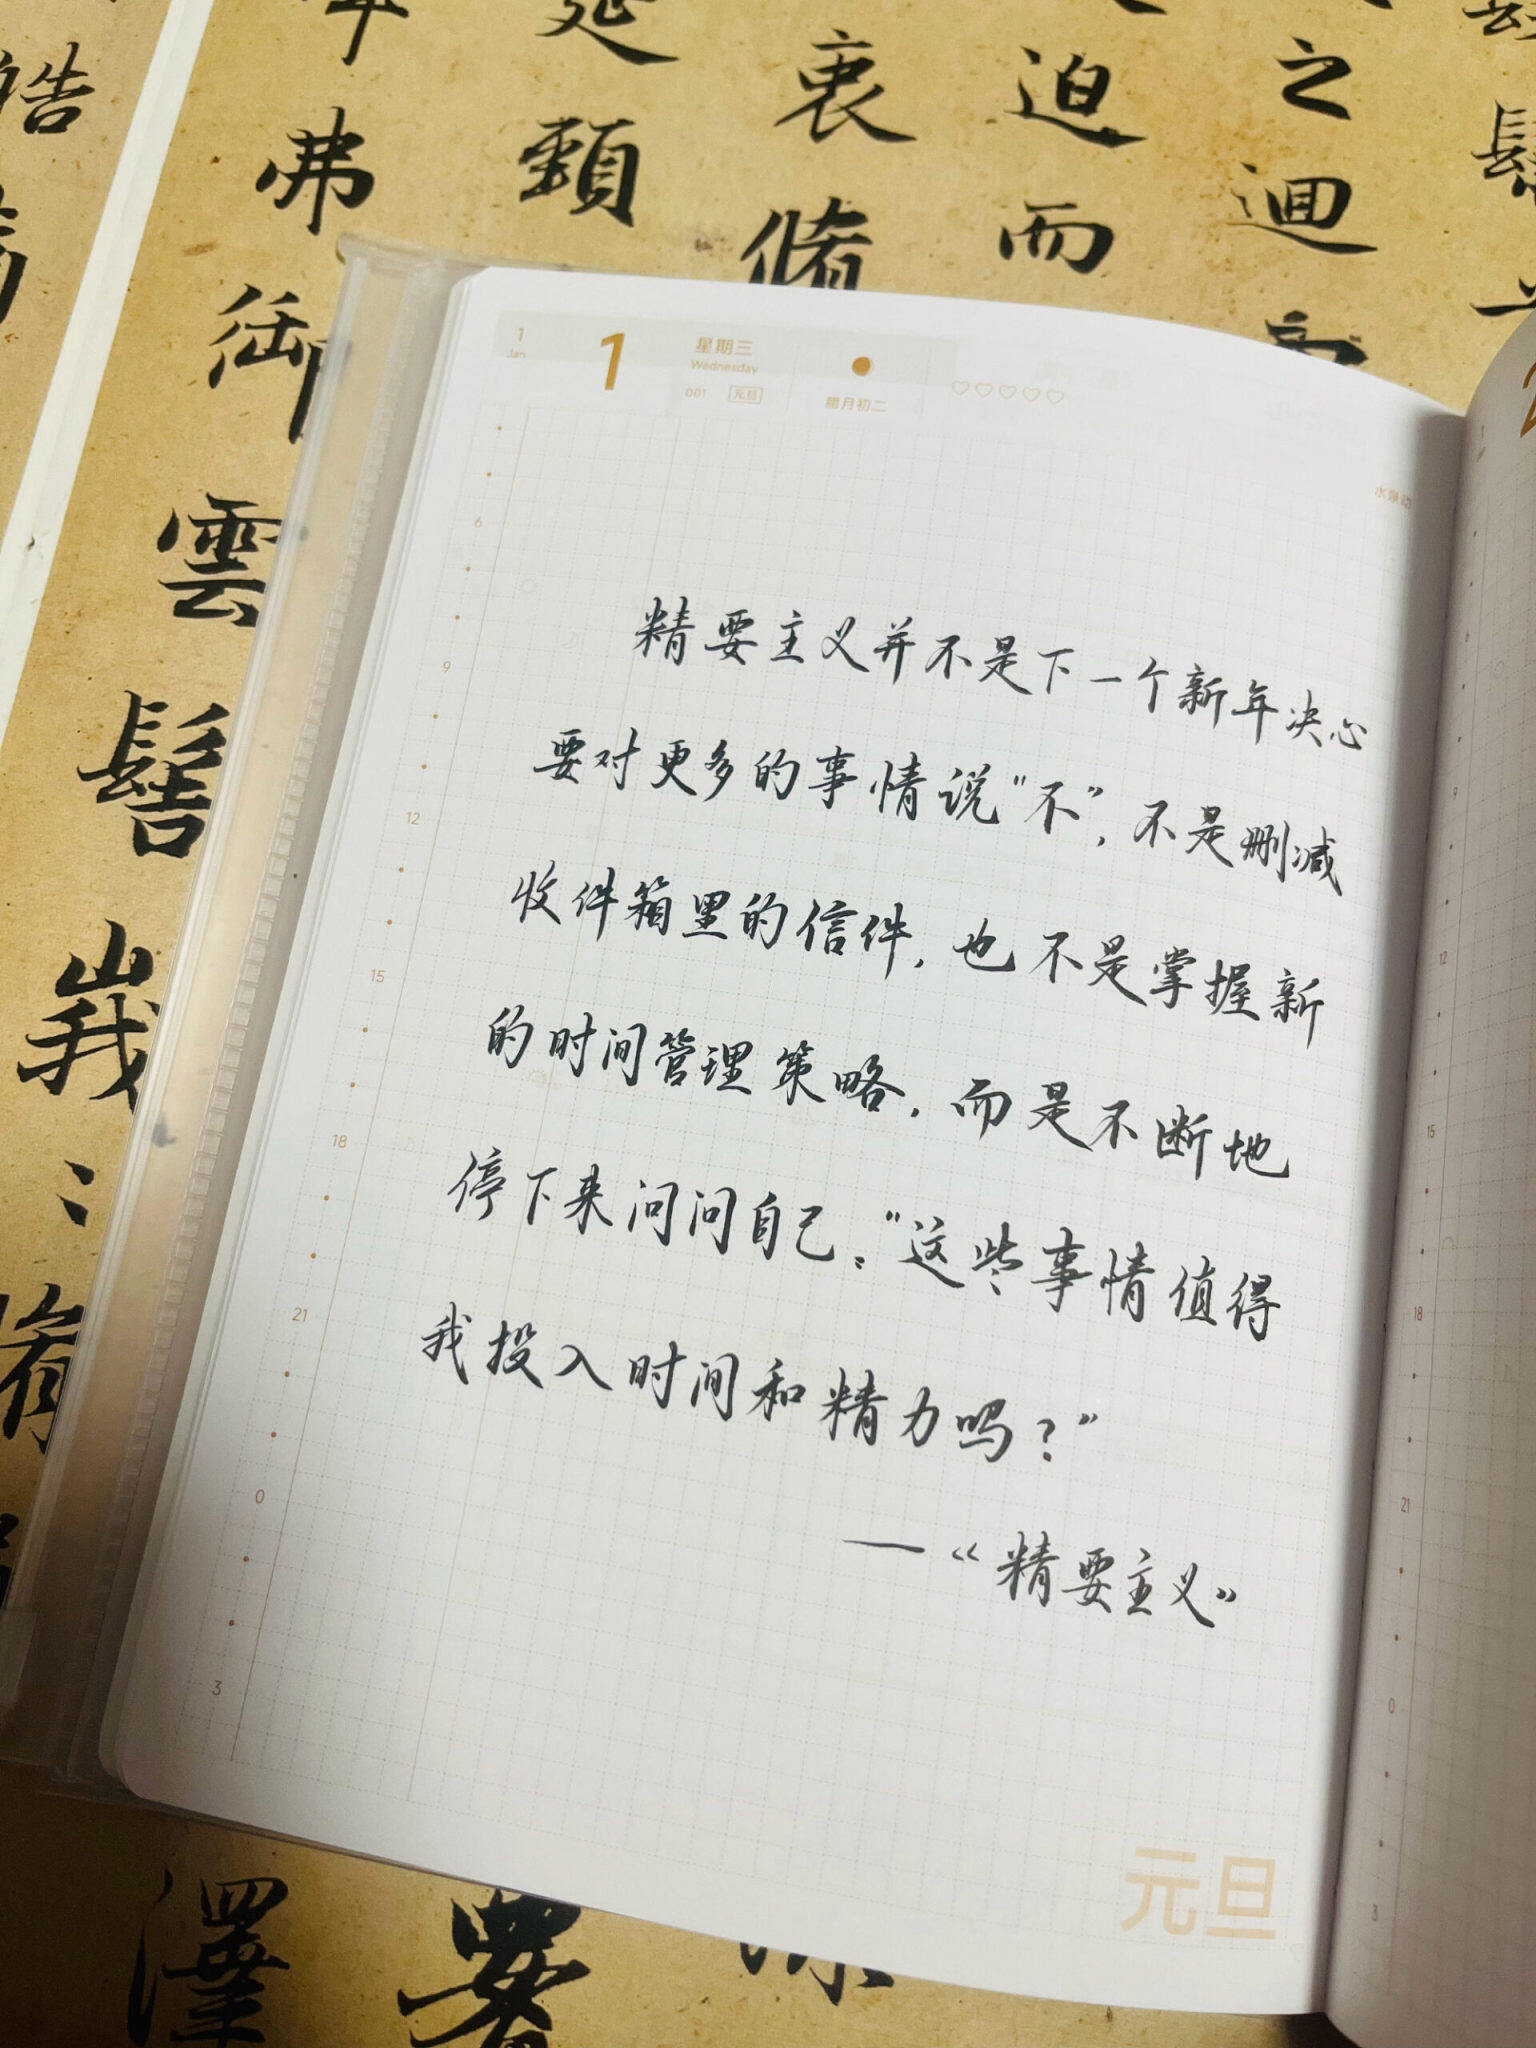 1
Jan
1
星期三
Wednesday
001 元旦
腊月初二
精要主义并不是下一个新年决心
要对更多的事情说"不"，不是删减
收件箱里的信件，也不是掌握新
的时间管理策略，而是不断地
停下来问问自己："这些事情值得
我投入时间和精力吗？"
—《精要主义》
6
9
12
15
18
21
0
3
元旦
9
12
15
18
21
0
3
之
迴
迫
而
衷
脩
延
頚
弗
御
雲
髻
峩
峩
皓
澤